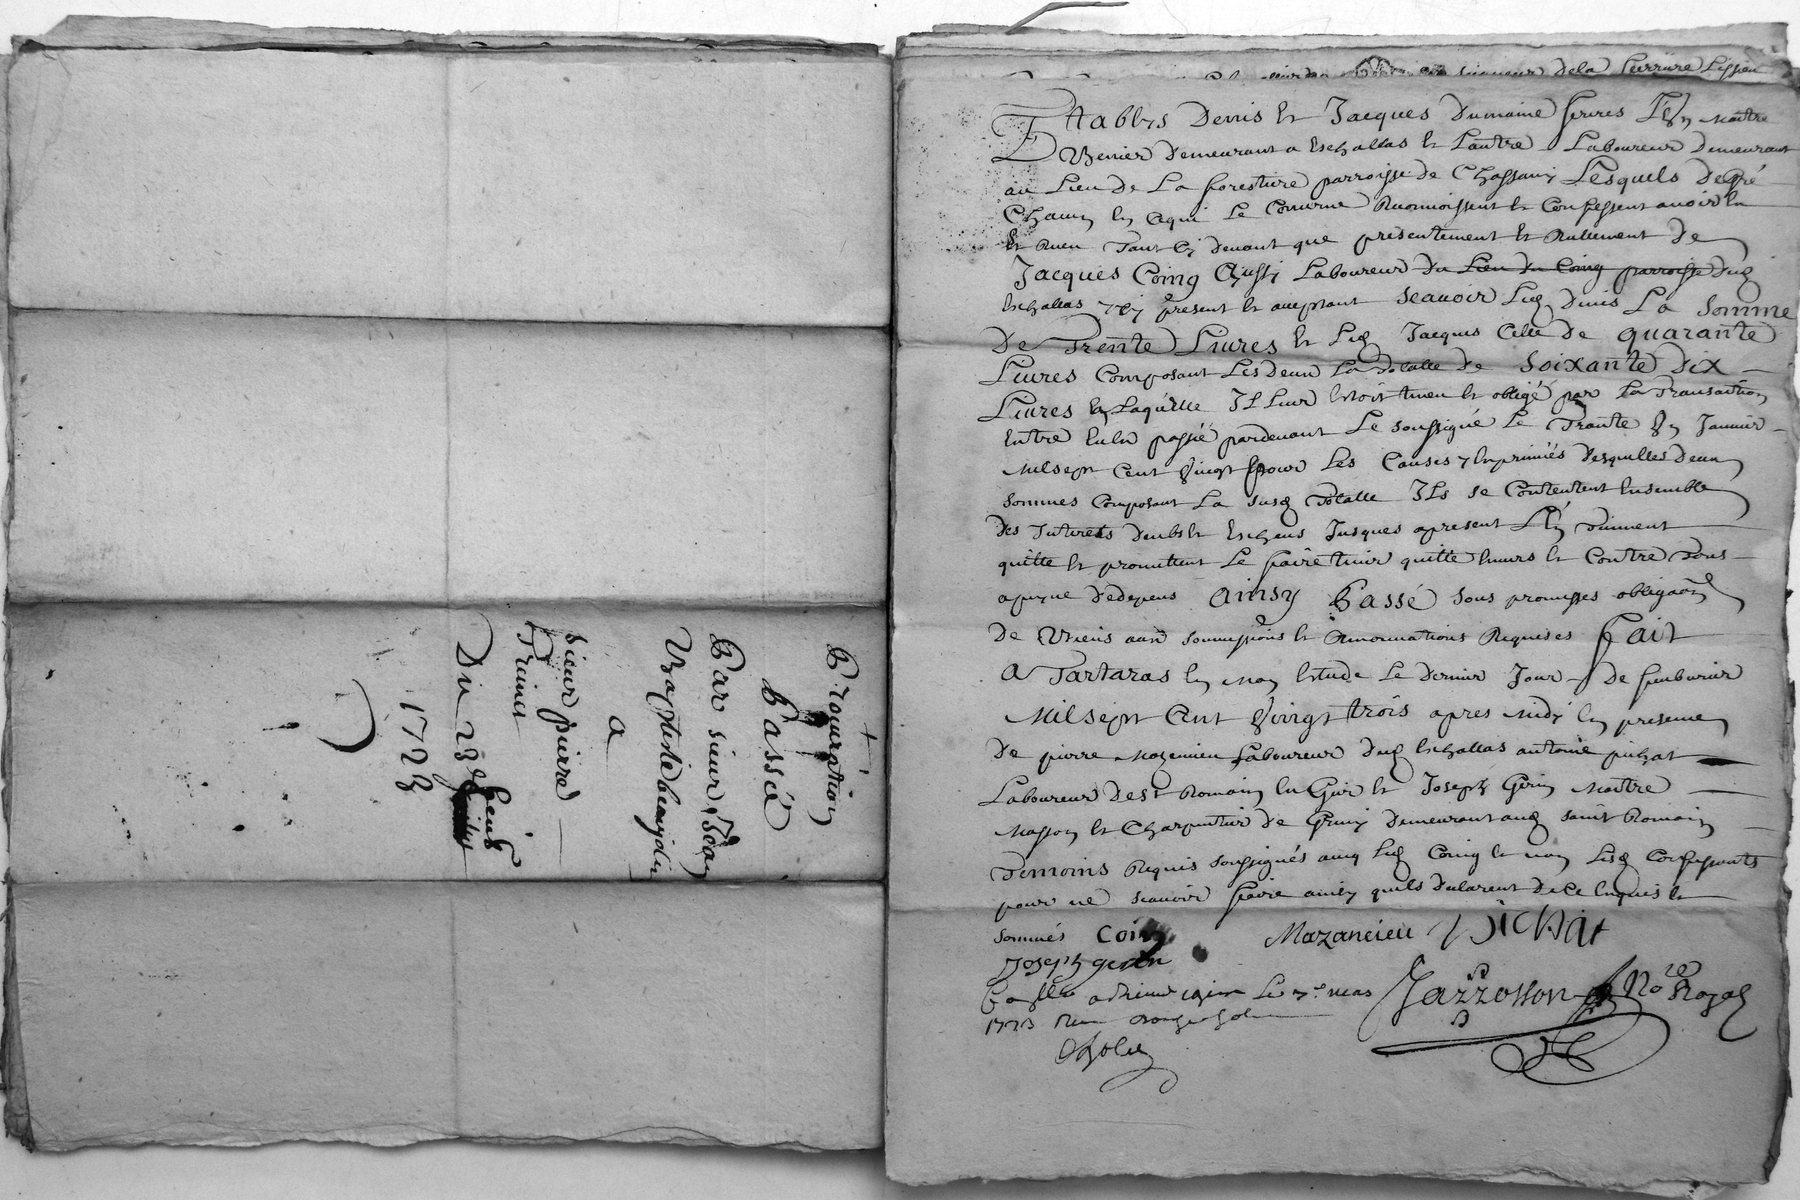 Procuration
Passé
Par sieur Jean
Baptiste beaujolin
a
sieur pierre
Prunet
Du 23e
1723
seigneur de la
Etablys Denis et Jacques Dumaine freres L'un maitre
demeurant a eschallas et Lautre Laboureur demeurant
au Lieu de La foresture parroisse de Chassaniy Lesquels de gré
Chacun en Ce qui Le Concerne Reconnoissent et Confessent avoir eu
et Receu Tant Cy devant que presentement et Reellement de
Jacques Coing Aussy Laboureur du Lieu du Coing parroisse dud
eschallas icy present et acceptant Scavoir Led denis La Somme
De Trente Livres et Led Jacques Celle de quarante
Livres Composant Les deux La Totalle de Soixante dix
Livres en Laquelle IL Leur estoit tenu et obligé par La Transaction
Entre eulx passée pardevant Le soussigné Le Trante Un Janvier
Mil sept Cent Vingt pour Les Causes y Exprimées desquelles deux
sommes Composant La susd Totalle ILs se Contentent Ensemble
des Interests deubs et Escheus Jusques apresent L'En Tiennent
quitte et promettent Le faire tenir quitte Envers et Contre Tous
a peyne de depens Ainsy Passé sous promesses obligaons
de Biens avec soumissions et Renonciations Requises Fait
A Tartaras En Mon Estude Le dernier Jour de febvrier
Mil sept Cent Vingt trois apres midy En presence
de pierre Mazenieu Laboureur dud Eschallas antoine pichat
Laboureur de st Romain En Gier et Joseph Gerin Maitre
Masson et Charpentier de demeurant aud saint Romain
Temoins Requis soussignés avec Led Coing et non Lesd Confessants
pour ne scavoir faire ainsy quils declarent de Ce Enquis et
sommés Coing Mazaneieu PICHAt
Joseph gerin
Jazzosson No.re Royal
Le 7e mars
1723